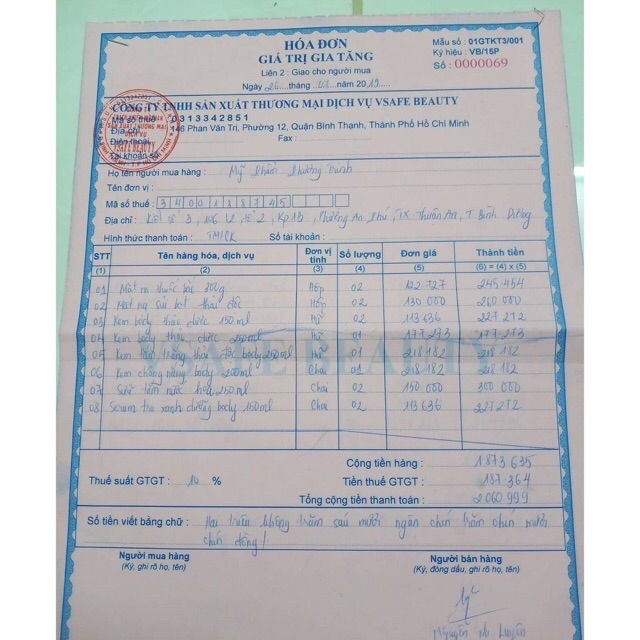 HÓA ĐƠN
GIÁ TRỊ GIA TĂNG
Liên 2 : Giao cho người mua
Ngày 26 tháng 03 năm 2019
Mẫu số : 01GTKT3/001
Ký hiệu : VB/15P
Số : 0000069
CÔNG TY TNHH SẢN XUẤT THƯƠNG MẠI DỊCH VỤ VSAFE BEAUTY
Mã số thuế 0313342851
Địa chỉ 146 Phan Văn Trị, Phường 12, Quận Bình Thạnh, Thành Phố Hồ Chí Minh
Điện thoại Fax :
Tài khoản số
VSAFE BEAUTY
Họ tên người mua hàng : Mỹ Phẩm Phương Trinh
Tên đơn vị :
Mã số thuế : 3400138745
Địa chỉ : 3, 2, Kp 13, Phường An Phú, TX Thuận An, T Bình Dương
Hình thức thanh toán : TM/CK Số tài khoản :
STT Tên hàng hóa, dịch vụ Đơn vị tính Số lượng Đơn giá Thành tiền
(1) (2) (3) (4) (5) (6) = (4) x (5)
01 thuốc bắc 300g Hộp 02 122 727 245 454
02 Mặt nạ Hộp 02 130 000 260 000
03 Kem body thảo dược 150ml Hũ 02 113 636 227 272
04 Kem body thảo dược 250ml Hũ 01 177 273 177 273
05 Kem trắng body 250ml Hũ 01 218 182 218 182
06 Kem chống nắng body 200ml Chai 01 218 182 218 182
07 Sữa tắm nước hoa 250ml Chai 02 150 000 300 000
08 Serum trà xanh dưỡng body 150ml Chai 02 113 636 227 272
VSAFE BEAUTY
Cộng tiền hàng : 1 873 635
Thuế suất GTGT : 10 % Tiền thuế GTGT : 187 364
Tổng cộng tiền thanh toán : 2 060 999
Số tiền viết bằng chữ : Hai triệu không trăm sáu mươi ngàn chín trăm chín mươi
chín đồng!
Người mua hàng Người bán hàng
(Ký, ghi rõ họ, tên) (Ký, đóng dấu, ghi rõ họ, tên)
Nguyễn